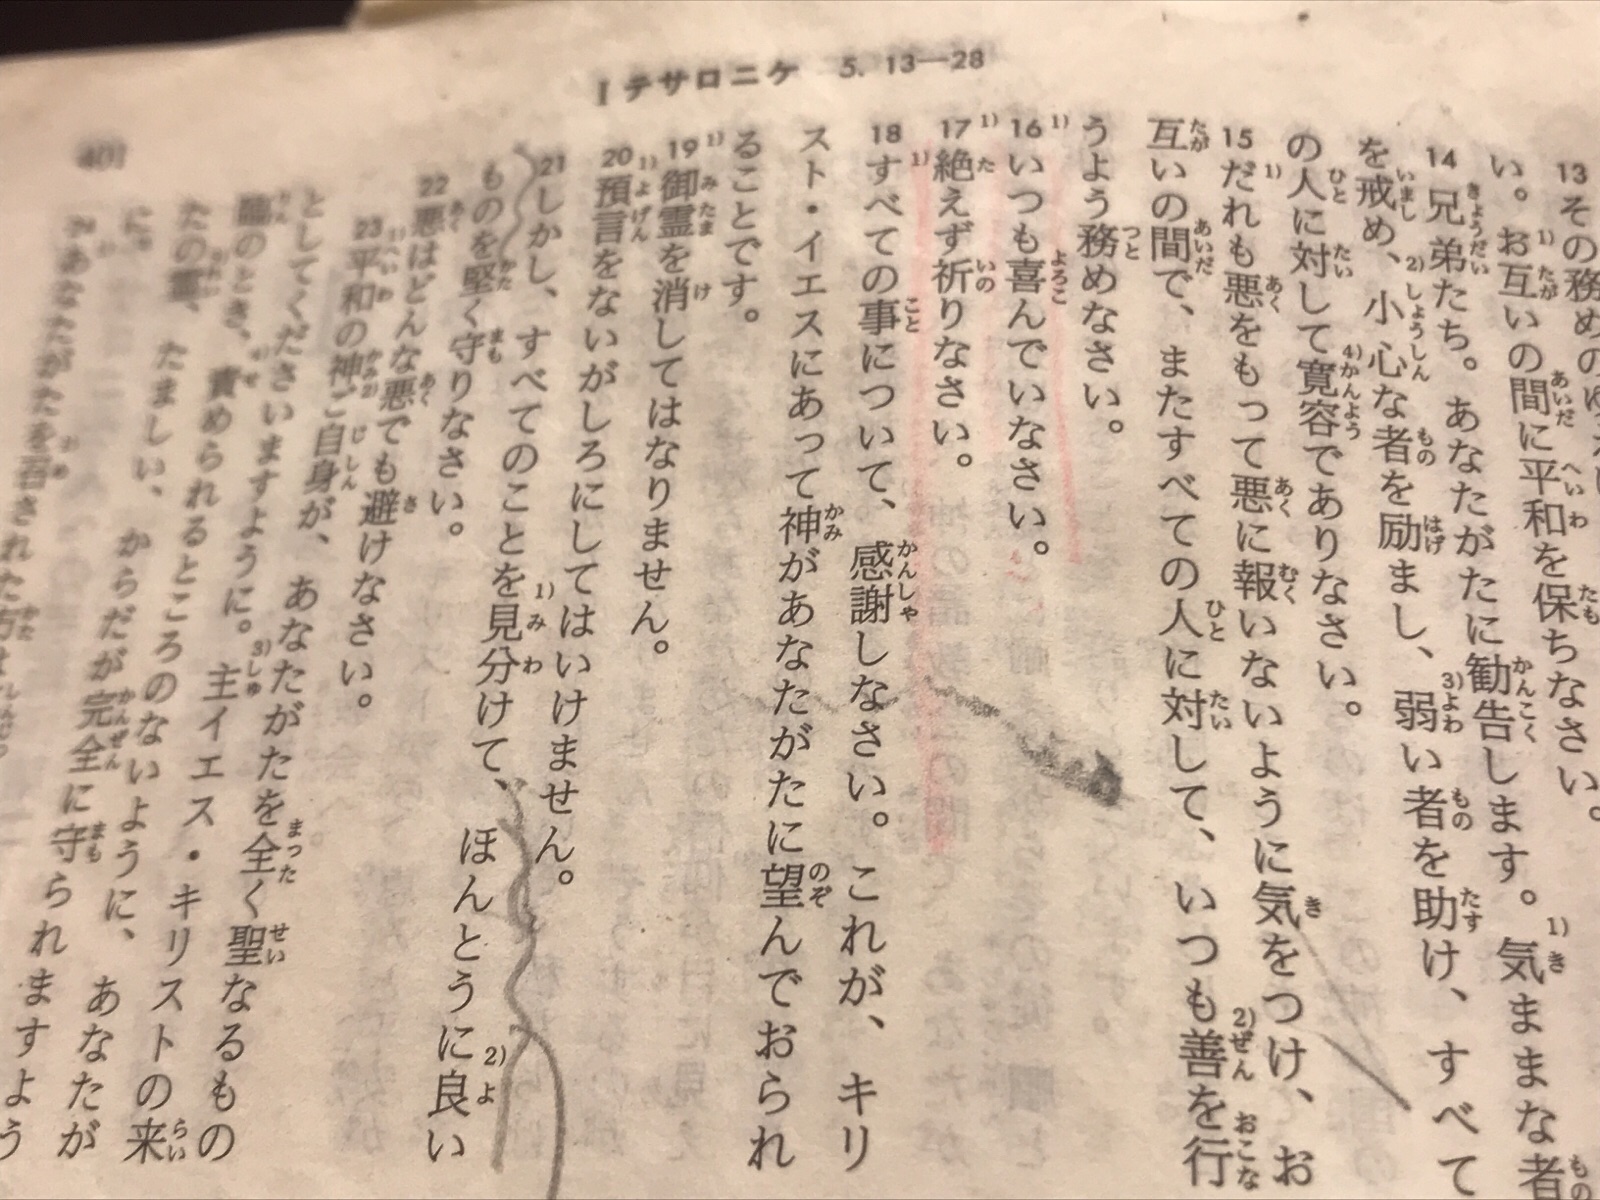 Ⅰテサロニケ 5. 13—28
401
13その務めのゆえ
い。お互いの間に平和を保ちなさい。
14兄弟たち。あなたがたに勧告します。気ままな者
を戒め、小心な者を励まし、弱い者を助け、すべて
の人に対して寛容でありなさい。
15だれも悪をもって悪に報いないように気をつけ、お
互いの間で、またすべての人に対して、いつも善を行
うよう務めなさい。
16いつも喜んでいなさい。
17絶えず祈りなさい。
18すべての事について、感謝しなさい。これが、キリ
スト・イエスにあって神があなたがたに望んでおられ
ることです。
19御霊を消してはなりません。
20預言をないがしろにしてはいけません。
21しかし、すべてのことを見分けて、ほんとうに良い
ものを堅く守りなさい。
22悪はどんな悪でも避けなさい。
23平和の神ご自身が、あなたがたを全く聖なるもの
としてくださいますように。主イエス・キリストの来
臨のとき、責められるところのないように、あなたが
たの霊、たましい、からだが完全に守られますよう
に。
24あなたがたを召された方は